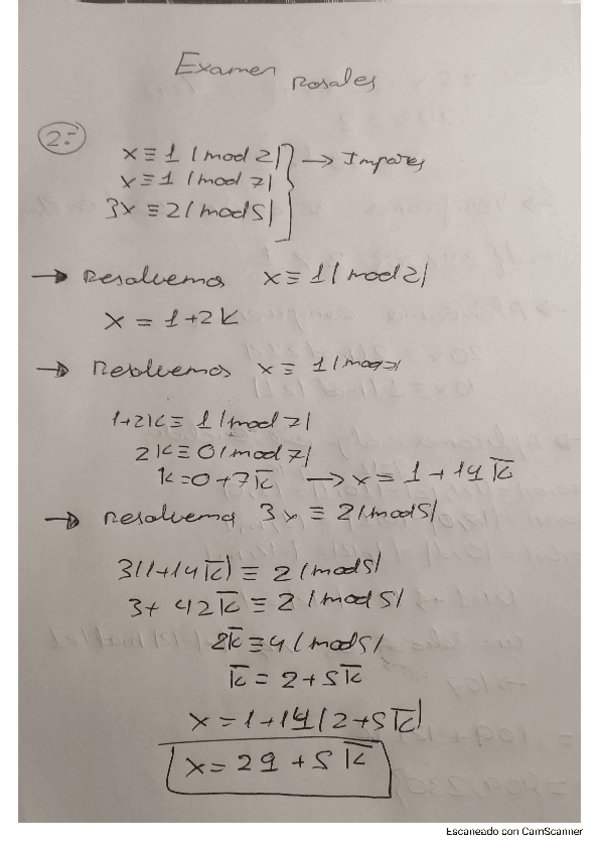 Examen Rosales
2:-
x ≡ 1 (mod 2)
x ≡ 1 (mod 7) → Impares
3x ≡ 2 (mod 5)
→ Resolvemos x ≡ 1 (mod 2)
x = 1 + 2K
→ Resolvemos x ≡ 1 (mod 7)
1 + 2K ≡ 1 (mod 7)
2K ≡ 0 (mod 7)
K = 0 + 7K̅ → x = 1 + 14K̅
→ Resolvemos 3x ≡ 2 (mod 5)
3(1 + 14K̅) ≡ 2 (mod 5)
3 + 42K̅ ≡ 2 (mod 5)
2K̅ ≡ 4 (mod 5)
K̅ = 2 + 5K̅
x = 1 + 14(2 + 5K̅)
x = 29 + 5K̅
Escaneado con CamScanner